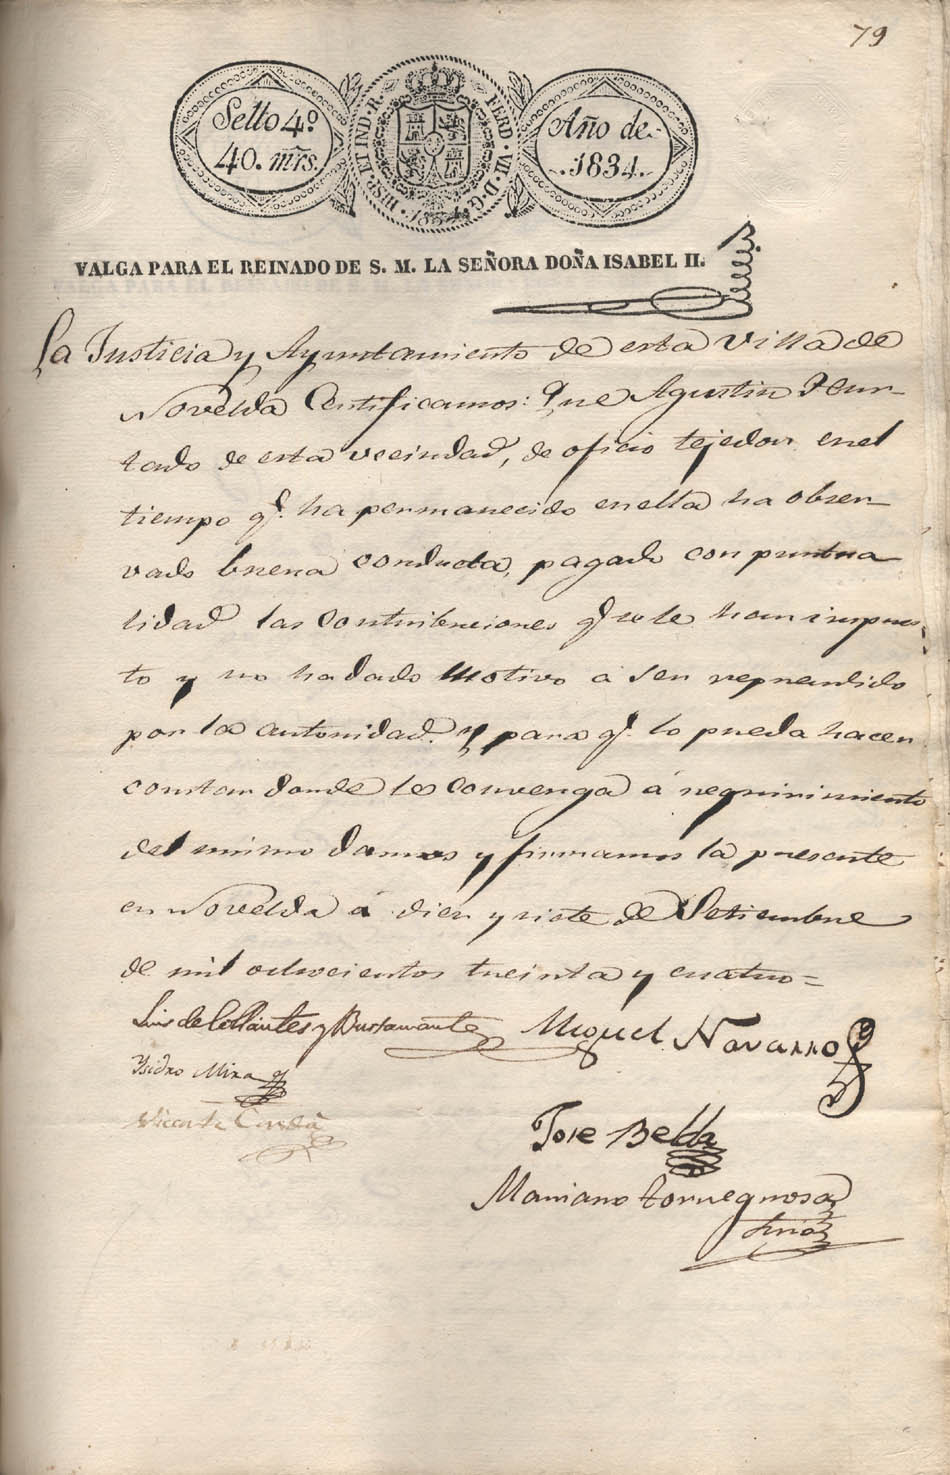 79
Sello 4º
40. mrs.
HISP. ET IND. R.
FERD. VII. D. G.
1834
Año de
1834.
VALGA PARA EL REINADO DE S. M. LA SEÑORA DOÑA ISABEL II.
La Justicia y Ayuntamiento de esta Villa de
Novelda Certificamos: Que Agustin Hur-
tado de esta vecindad, de oficio tejedor en el
tiempo q.e ha permanecido en ella ha obser-
vado buena conducta, pagado con puntua
lidad las contribuciones q.e se le han impues
to y no ha dado motivo á ser reprendido
por la autoridad. Y para q.e lo pueda hacer
constar donde le convenga á requirimiento
del mismo damos y firmamos la presente
en Novelda á diez y siete de Setiembre
de mil ochocientos treinta y cuatro=
Luis de Collantes y Bustamante
Miguel Navarro
Isidro Mira
Vicente Cerdá
Jose Belda
Mariano Torregrosa
Srio